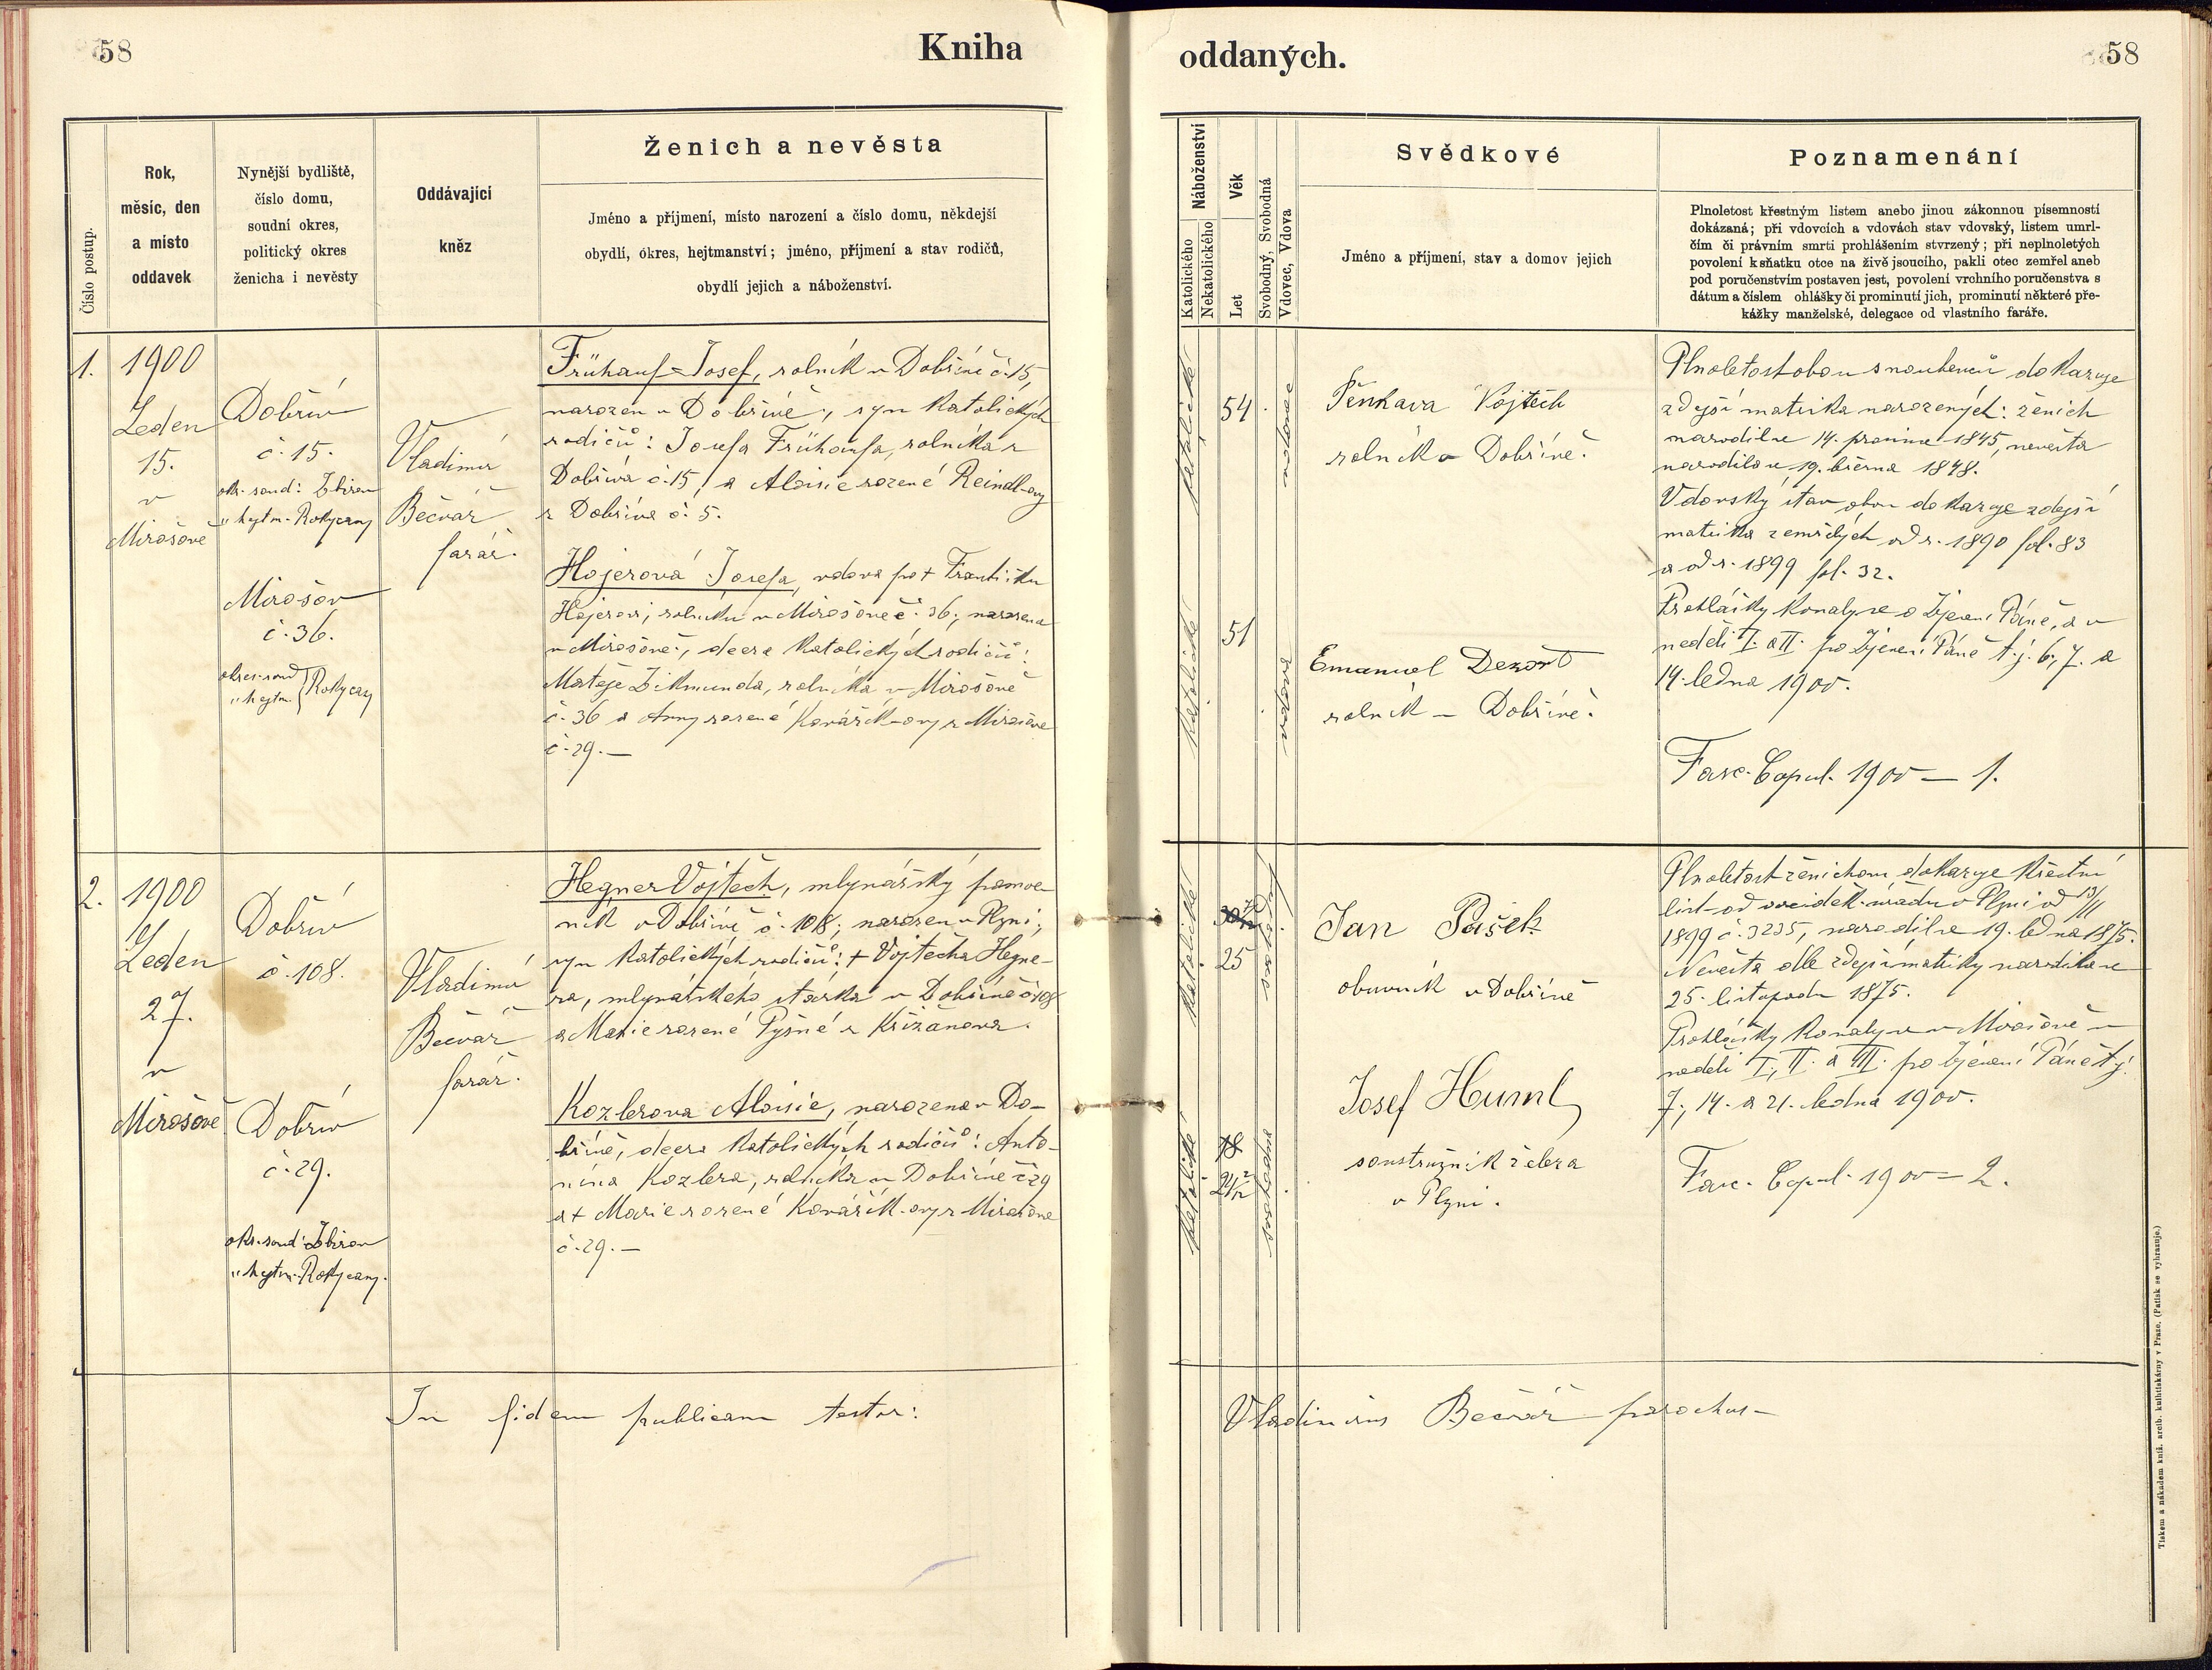 58
Kniha
oddaných.
58
Číslo postup.
Rok,
měsíc, den
a místo
oddavek
Nynější bydliště,
číslo domu,
soudní okres,
politický okres
ženicha i nevěsty
Oddávající
kněz
Ženich a nevěsta
Jméno a příjmení, místo narození a číslo domu, někdejší
obydlí, okres, hejtmanství; jméno, příjmení a stav rodičů,
obydlí jejich a náboženství.
Náboženství
Katolického
Nekatolického
Věk
Let
Svobodný, Svobodná
Vdovec, Vdova
Svědkové
Jméno a příjmení, stav a domov jejich
Poznamenání
Plnoletost křestným listem anebo jinou zákonnou písemností
dokázaná; při vdovcích a vdovách stav vdovský, listem umrl-
čím či právním smrti prohlášením stvrzený; při neplnoletých
povolení k sňatku otce na živě jsoucího, pakli otec zemřel aneb
pod poručenstvím postaven jest, povolení vrchního poručenstva s
dátum a číslem ohlášky či prominutí jich, prominutí některé pře-
kážky manželské, delegace od vlastního faráře.
1.
1900
Leden
15.
v
Mirošově
Dobřív
č. 15.
okr. soud: Zbirov
" hejtm. Rokycany
Mirošov
č. 36.
okres. soud
" hejtm. } Rokycany
Vladimír
Bečvář
farář.
Frühauf Josef, rolník v Dobřívě č. 15,
narozen v Dobřívě, syn katolických
rodičů: Josefa Frühaufa, rolníka z
Dobříva č. 15, a Aloisie rozené Reindl-ovy
z Dobříva č. 5.
Hojerová Josefa, vdova po + Františku
Hojerovi, rolníku v Mirošově č. 36; narozena
v Mirošově, dcera katolických rodičů:
Matěje Zikmunda, rolníka v Mirošově
č. 36 a Anny rozené Kovářík-ovy z Mirošova
č. 29. —
katolické
54
vdovec
katolické
51
vdova
Pěnkava Vojtěch
rolník v Dobřívě.
Emanuel Dezort
rolník – Dobřívě.
Plnoletost obou snoubenců dokazuje
zdejší matrika narozených: ženich
narodil se 14. prosince 1845, nevěsta
narodila se 19. března 1848.
Vdovský stav obou dokazuje zdejší
matrika zemřelých od r. 1890 fol. 83
a od r. 1899 fol. 32.
Prohlášky konaly se o Zjevení Páně, a v
neděli I. a II. po Zjevení Páně t. j. 6., 7. a
14. ledna 1900.
Fasc. Copul. 1900 — 1.
2.
1900
Leden
27.
v
Mirošově
Dobřív
č. 108.
Dobřív
č. 29.
okr. soud: Zbirov
" hejtm. Rokycany.
Vladimír
Bečvář
farář.
Hegner Vojtěch, mlynářský pomoc-
ník v Dobřívě č. 108; narozen v Plzni;
syn katolických rodičů: + Vojtěcha Hegne-
ra, mlynářského stárka v Dobřívě č. 108
a Marie rozené Pyšné z Křižanova.
Kozlerova Aloisie, narozena v Do-
břívě, dcera katolických rodičů: Anto-
nína Kozlera, rolníka v Dobřívě č. 29
a + Marie rozené Kovářík-ovy z Mirošova
č. 29. —
katolické
25
katolické
Jan Pašek
obuvník v Dobřívě
Josef Huml
soustružník železa
v Plzni.
Plnoletost ženichovu dokazuje křestní
list od arciděk. úřadu v Plzni od 13/11
1899 č. 3235, narodil se 19. ledna 1875.
Nevěsta dle zdejší matriky narodila se
25. listopadu 1875.
Prohlášky konaly se v Mirošově v
neděli I., II. a III. po Zjevení Páně t. j.
7., 14. a 21. ledna 1900.
Fasc. Copul. 1900 — 2.
In fidem publicam testor:
Vladimirus Bečvář parochus –
Tiskem a nákladem kníž. arcib. knihtiskárny v Praze. (Patisk se vyhrazuje.)